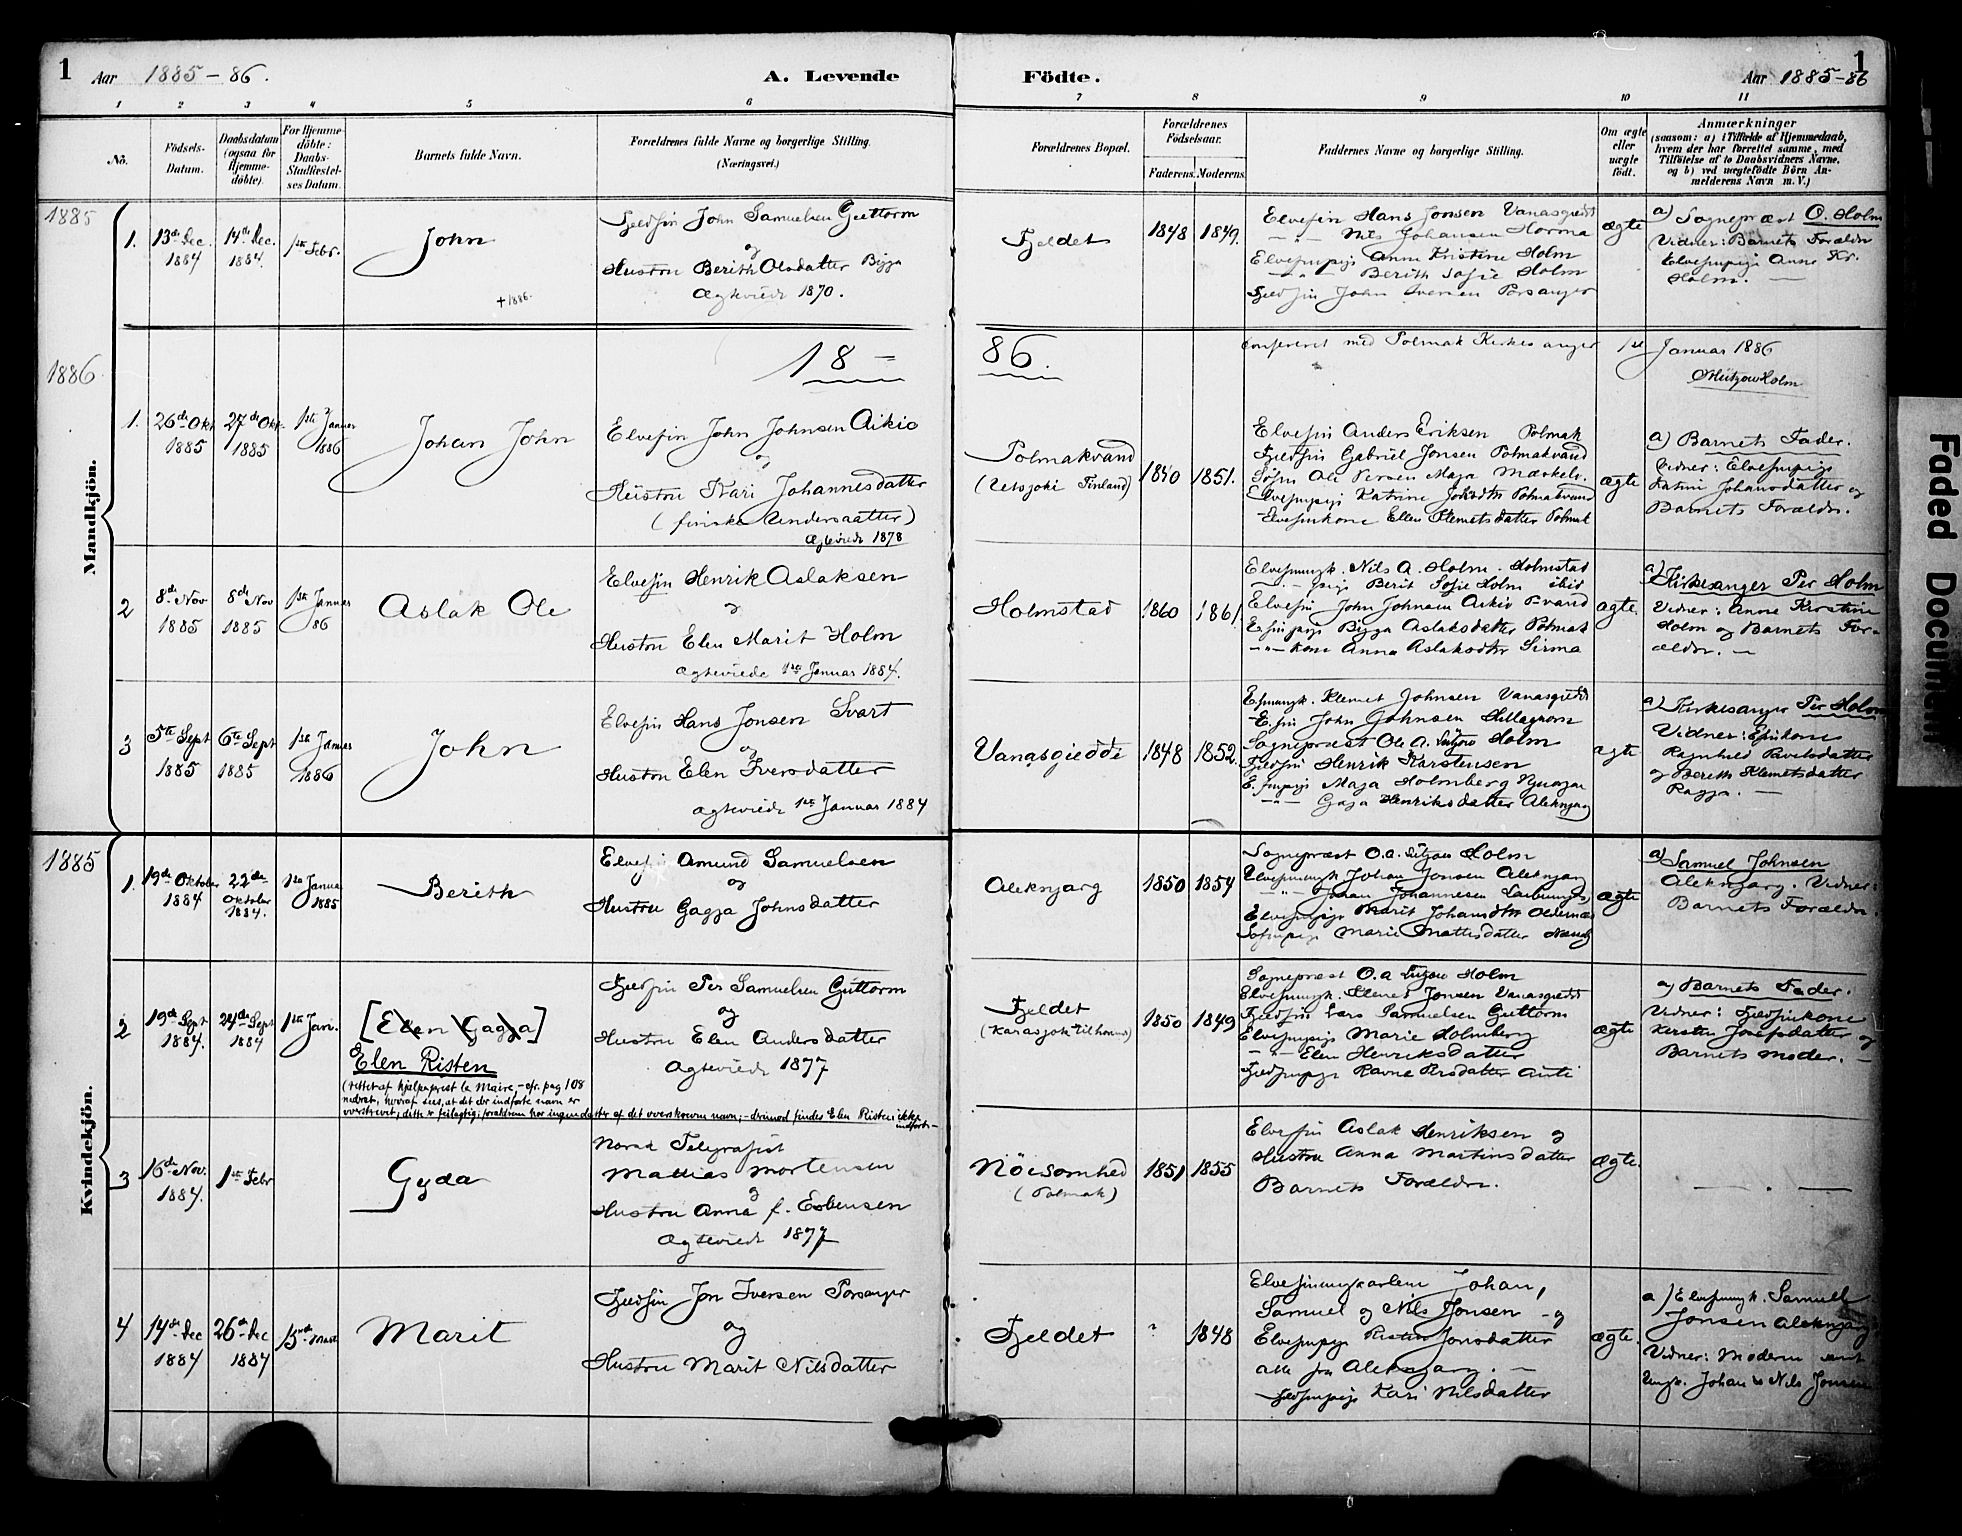 1 Aar 1885-86. A. Levende Födte. Aar 1885-86 1
1 2 3 4 5 6 7 8 9 10 11
No.
Födsels-
Datum.
Daabsdatum
(ogsaa for
Hjemme-
döbte).
For Hjemme-
döbte:
Daabs-
Stadfæstel-
ses Datum.
Barnets fulde Navn.
Forældrenes fulde Navne og borgerlige Stilling.
(Næringsvei.)
Forældrenes Bopæl.
Forældrenes
Fødselsaar.
Faderens. Moderens.
Faddernes Navne og borgerlige Stilling.
Om ægte
eller
uægte
födt.
Anmærkninger
(saasom: a) i Tilfælde af Hjemmedaab,
hvem der har forrettet samme, med
Tilföielse af to Daabsvidners Navne,
og b) ved uægtefödte Börn An-
melderens Navn m. V.)
Mandkjön.
1885
1.
13de Dec.
1884
14de Dec.
1884.
1ste Febr.
John
+ 1886.
Fjeldfin John Samuelsen Guttorm
og
Hustru Berith Olsdatter Bigga
Ægteviede 1870.
Fjeldet
1848 1849.
Elvefin Hans Jonsen Vanasgiedde
- " - Nils Johansen Horma
Elvefinpige Anne Kristine Holm
- " - Berith Sofie Holm
Fjeldfin John Iversen Porsanger
ægte
a) Sognepræst O. Holm
Vidner: Barnets Forældre
Elvefinpige Anne Kr.
Holm. -
1886
18 - 86.
Confereret med Polmak Kirkesanger 1ste Januar 1886
Lützow Holm
1.
26de Okt
1885
27de Okt.
1885
1ste Januar
1886
Johan John
Elvefin John Johnsen Aikio
og
Hustru Kari Johannesdatter
(finske Undersaatter)
Ægteviede 1878
Polmakvand
(Utsjoki Finland)
1840 1851.
Elvefin Anders Eriksen Polmak
Fjeldfin Gabriel Jonsen Polmakvand
Søfin Ole Persen Maja Mæskelv.
Elvefinpige Katrine Polmakvand
Elvefinkone Ellen Klemetsdatter Polmak
ægte
a) Barnets Fader.
Vidner: Elvefinpige
Katrine Johansdatter og
Barnets Forældre.
2
8de Nov
1885
8de Nov
1885
1ste Januar
86
Aslak Ole
Elvefin Henrik Aslaksen
og
Hustru Elen Marit Holm
Ægteviede 1ste Januar 1884.
Holmstad
1860 1861.
Elvefinungk Nils A. Holm. Holmstad
- " - pige Berit Sofie Holm ibid
Elvefin John Johnsen Aikio P-vand
E.finpige Bigga Aslaksdatter Polmak
- " - kone Anna Aslaksdtr Sirma
ægte.
a) Kirkesanger Per Holm
Vidner: Anne Kirstine
Holm og Barnets For-
ældre. -
3
5te Sept
1885
6te Sept
1885
1ste Januar
1886
John
Elvefin Hans Jonsen Svart
og
Hustru Elen Iversdatter
Ægteviede 1ste Januar 1884
Vanasgiedde
1848 1852.
E.finungk. Klemet Johnsen Vanasgiedde
E.fin John Johnsen Hillagurra
Sognepræst Ole A. Lützow Holm
Fjeldfin Henrik Karstensen
E.finpige Maja Holmberg
- " - Gaga Henriksdatter Aleknjarg
ægte
a) Kirkesanger Per Holm
Vidner: E.fikone
Ragnhild Pavelsdatter
og Berith Klemetsdatter
Ragja. -
Kvindekjön.
1885
1.
19de Oktober
1884
22de
Oktober
1884.
1ste Januar
1885
Berith
Elvefin Amund Samuelsen
og
Hustru Gagga Johnsdatter
Aleknjarg
1850 1854
Sognepræst O.A. Lützow Holm
Elvefinungk Johan Jonsen Aleknjarg
- " - Johan Johannesen
Elvefinpige Marit Johansdtr
Søfinpige Marie Mattisdatter
ægte
a) Samuel Johnsen
Aleknjarg. Vidner:
Barnets Forældre.
2
19de Sept
1884.
24de Sept
1884
1ste Jan.
[Elen Gagga]
Elen Risten
(rettet af hjelpeprest la Maire, - cfr. pag 108
nederst, hvoraf sees, at det der indførte navn er
overstrevet; dette er feilagtig; forældrene har ingen datter af det overskrevne navn; - derimod findes Elen Risten ikke
indført. -
Fjeldfin Per Samuelsen Guttorm
og
Hustru Elen Andersdatter
Ægteviede 1877
Fjeldet
(Karasjok tilhørende)
1850 1849
Sognepræst O.A Lützow Holm
Elvefinungk. Klemet Jonsen Vanasgiedde
Fjeldfin Lars Samuelsen Guttorm
Elvefinpige Marie Holmberg
- " - Elen Henriksdatter
Fjeldfinpige Ravna Persdatter Anti
ægte
a) Barnets Fader.
Vidner: Fjeldfinkone
Kersten Josefsdatter og
Barnets Moder. -
3
16de Nov.
1884.
1ste Febr
Gyda
Norsk Telegrafist
Mattias Mortensen
og
Hustru Anna f. Esbensen
Ægteviede 1877
Nöisomhed
(Polmak)
1851 1855
Elvefin Aslak Henriksen og
Hustru Anna Martinsdatter
Barnets Forældre.
ægte.
- . -
4
14de Dec
1884
26de Dec
1884
Marit
Fjeldfin Jon Iversen Porsanger
og
Hustru Marit Nilsdatter
Fjeldet
? 1848
Elvefinungkarlene Johan,
Samuel og Nils Jonsen - og
Elvefinpige Risten Jonsdatter
alle fra Aleknjarg. -
Fjeldfinpige Kari Nilsdatter
ægte.
a) Elvefinungk. Samuel
Jonsen Aleknjarg
Vidner: Moderen samt
Ungk. Johan & Nils Jonsen
Faded Document